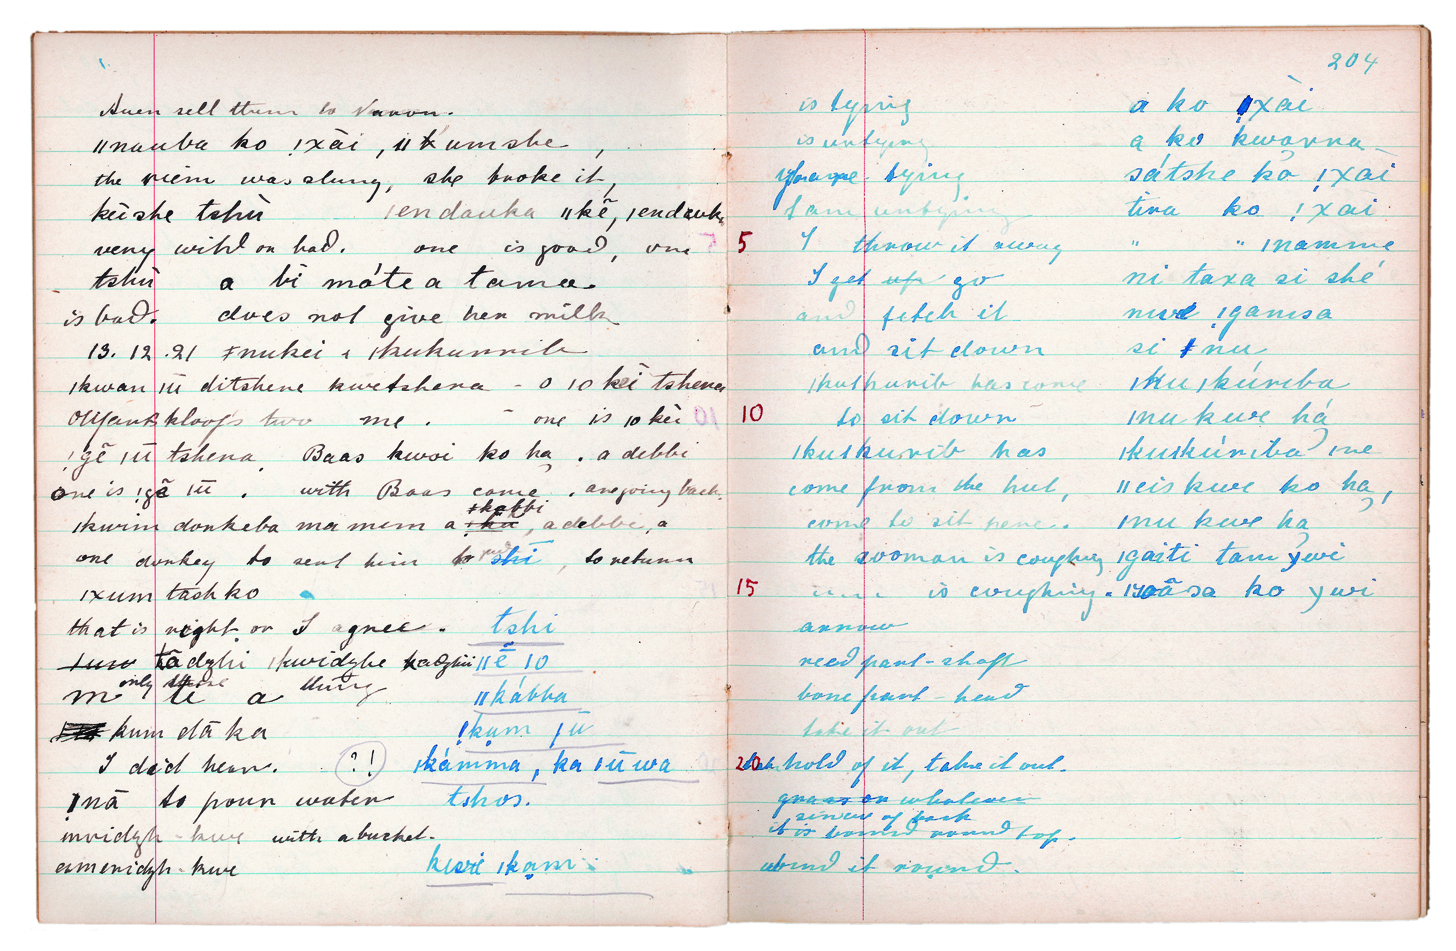 Auen sell them to Naron.
ǁnauba ko ǃxài, ǁkumshe,
the riem was slung, she broke it,
kèishe tshù ǀendauka ǁkẽ, ǀendauka
very wild or bad. one is good, one
tshù a bi máte a tamee.
is bad. does not give her milk
13.12.21 ǂnukei & ǀkukunrib
ǀkwan ǀū ditshene kwetshena - o 10 kèi tshena
Olifants kloofs two me. - one is 10 kèi
ǃgẽ ǀū tshena. Baas kwoi ko ha. a debbi
one is ǃgẽ ǀū. with Baas come. are going back.
ǂkabbi
ǀkwim donkeba ma mem a, a debbe, a
one donkey to sent him to shi, to return
ǀxum tash ko
that is right or I agree. tshi
tãdzhi ǀkwidzhe kadzhi ǁẽ 10
only these thing
m tè a ǁkábba
kum dā ka ǃkam ǀū
I did hear. ?! ǀkámma, ka ǀūwa
ǃnā to pour water tshos.
mridzh - kwe with a bucket.
ameridzh - kwe kwè ǀkam
204
is tying a ko ǃxài
is untying a ko kwarra
you are tying sátshe ko ǃxài
I am untying tira ko ǃxài
5 I throw it away " " ǀnamme
I get up go ni taxa si shé
and fetch it nwe ǃgamsa
and sit down si ǂnu
ǀkukurib has come ǀkuǀkúriba
10 to sit down ǀnu kwe há
ǀkuǀkurib has ǀkuǀkúriba me
come from the hut, ǁeis kwe ko ha,
come to sit here. ǀnu kwe ha
the woman is coughing ǀgaiti tam ywi
15 is coughing. ǀyoãsa ko ywi
arrow
reed part - shaft
bone part - head
take it out
20 hold of it, take it out.
grass or whatever
sinew of back
it is bound round top.
wind it round.